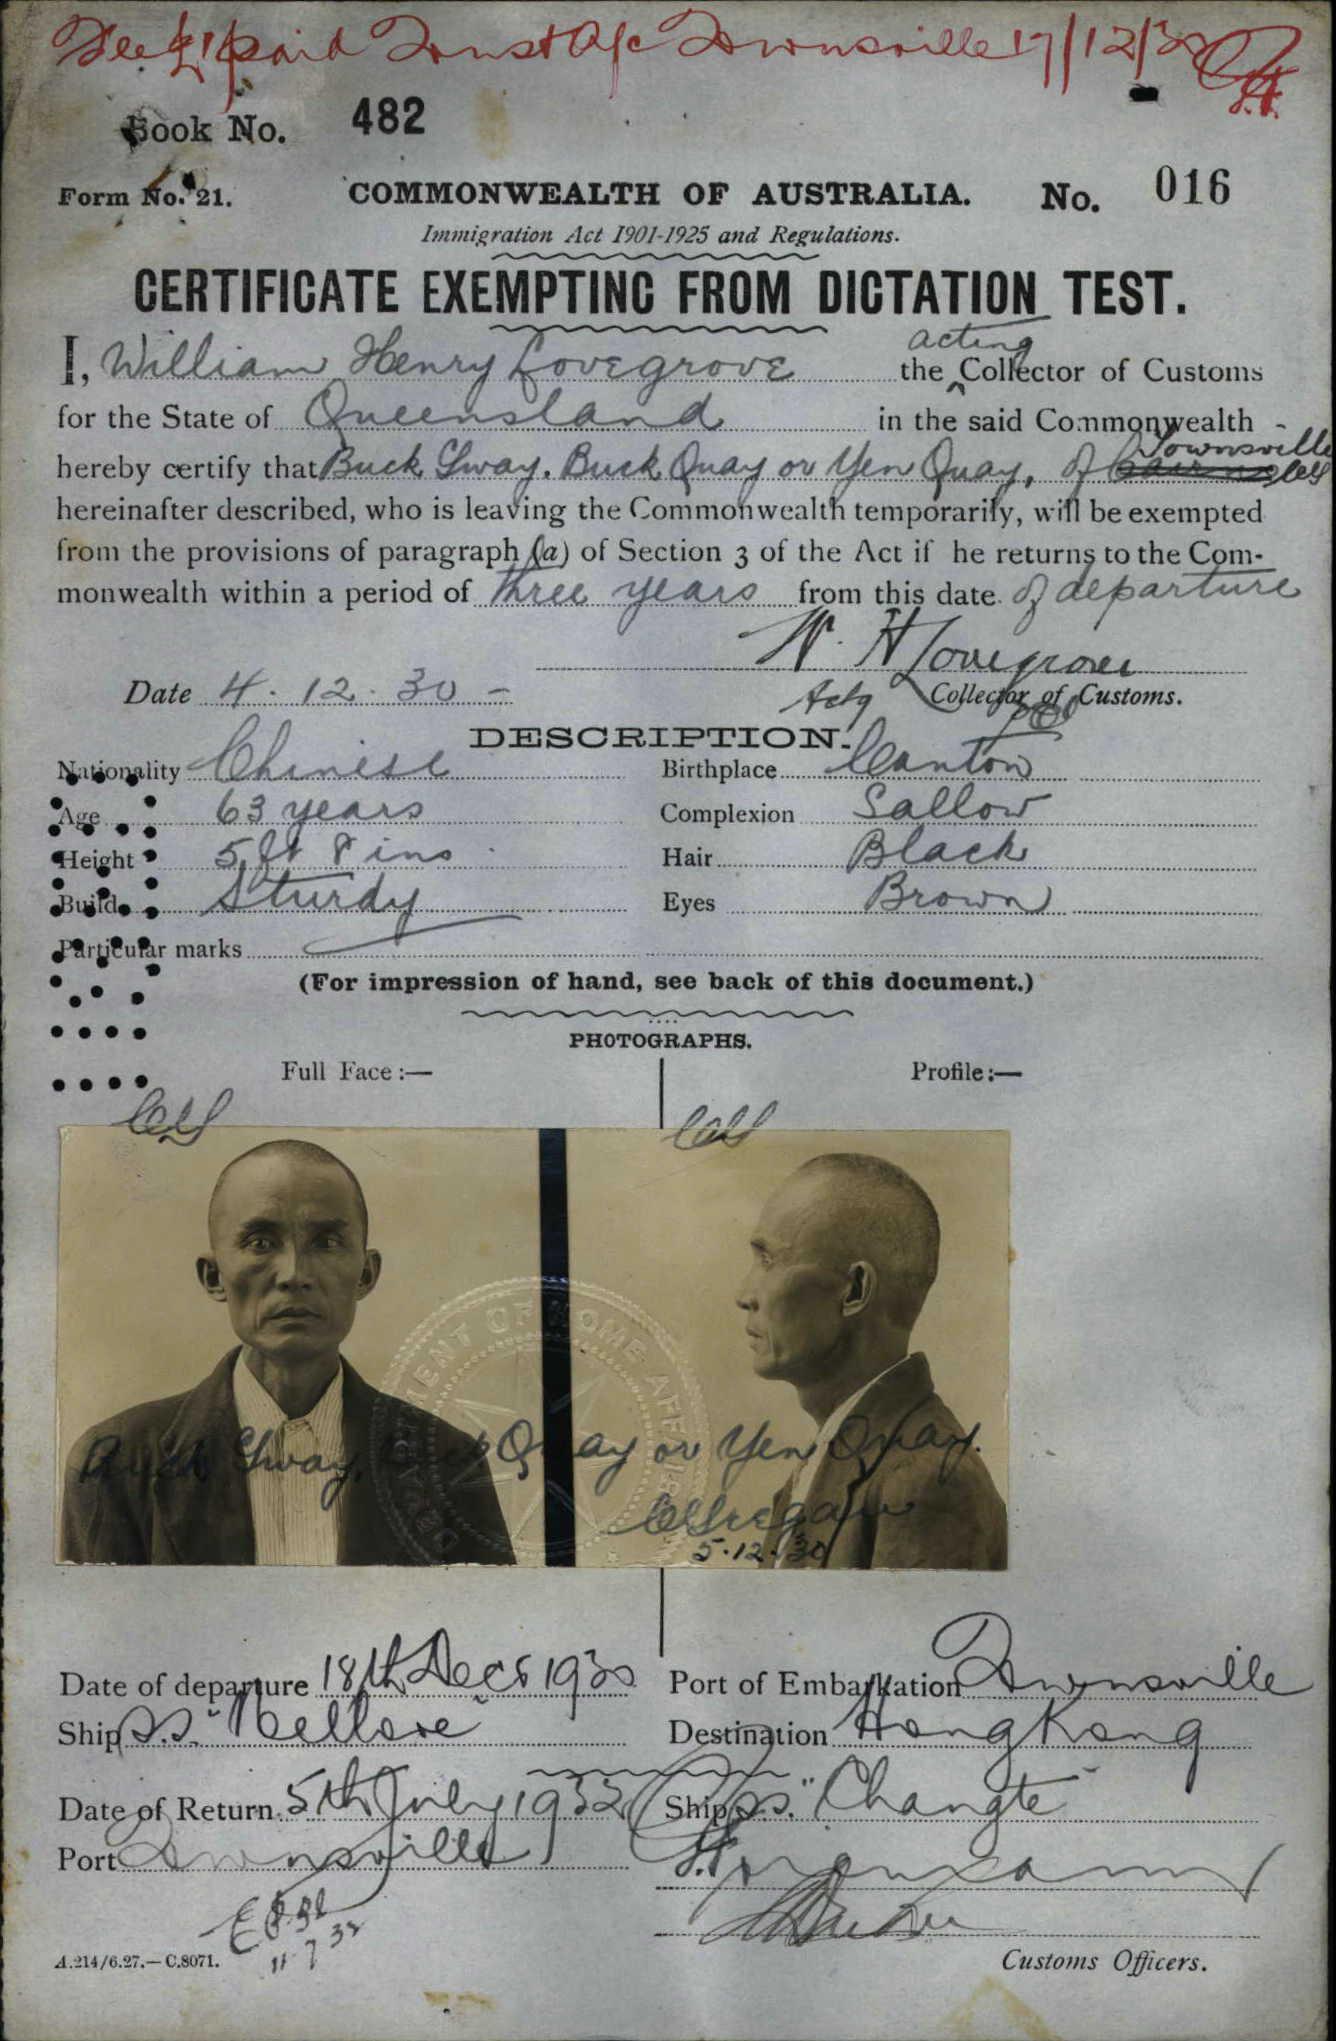 Fee £1 paid Trust A/c Townsville 17/12/30
Book No. 482
Form No. 21. COMMONWEALTH OF AUSTRALIA. No. 016
Immigration Act 1901-1925 and Regulations.
CERTIFICATE EXEMPTING FROM DICTATION TEST.
acting
I, William Henry Lovegrove the ^ Collector of Customs
for the State of Queensland in the said Commonwealth -
Townsville
hereby certify that Buck Gway, Buck Quay or Yen Quay, of Cairns
hereinafter described, who is leaving the Commonwealth temporarily, will be exempted
from the provisions of paragraph (a) of Section 3 of the Act if he returns to the Com-
monwealth within a period of three years from this date of departure
W. H Lovegrove
Date 4. 12. 30 - Actg Collector of Customs.
DESCRIPTION.
Nationality Chinese Birthplace Canton
Age 63 years Complexion Sallow
Height 5 ft 8 ins Hair Black
Build Sturdy Eyes Brown
Particular marks
(For impression of hand, see back of this document.)
PHOTOGRAPHS.
Full Face :— Profile :—
DEPARTMENT OF HOME AFFAIRS
Buck Gway, Buck Quay or Yen Quay.
5.12.30
Date of departure 18th Dec 1930 Port of Embarkation Townsville
Ship S.S. "Nellore" Destination Hong Kong
Date of Return 5th July 1932 Ship S.S. "Changte"
Port Townsville
11 7 32
A.214/6.27.—C.8071. Customs Officers.